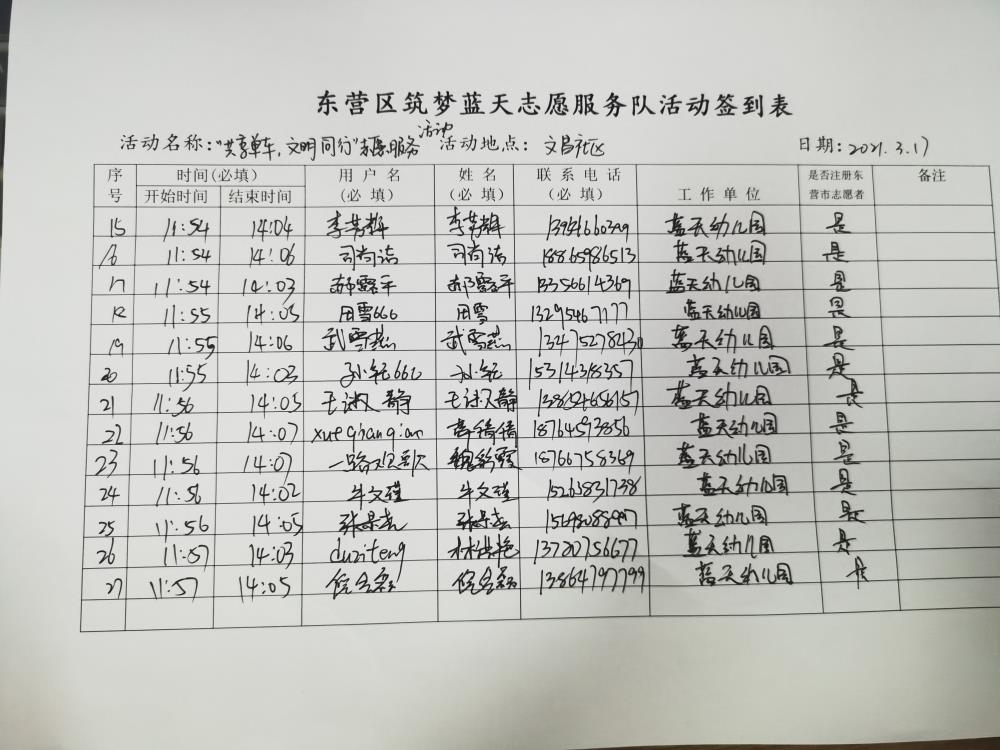 东营区筑梦蓝天志愿服务队活动签到表
活动名称："共享单车，文明同行"志愿服务活动 活动地点：文昌社区 日期：2021.3.17
序号 时间(必填) 用户名(必填) 姓名(必填) 联系电话(必填) 工作单位 是否注册东营市志愿者 备注
开始时间 结束时间
15 11:54 14:04 李芳辉 李芳辉 蓝天幼儿园 是
16 11:54 14:06 司尚洁 司尚洁 18865986513 蓝天幼儿园 是
17 11:54 14:03 郝露平 郝露平 13356614369 蓝天幼儿园 是
18 11:55 14:05 田雪666 田雪 13295467177 蓝天幼儿园 是
19 11:55 14:06 武雪燕 武雪燕 13475278430 蓝天幼儿园 是
20 11:55 14:03 孙纯66 孙纯 15314318357 蓝天幼儿园 是
21 11:56 14:05 王淑静 王淑静 13854656157 蓝天幼儿园 是
22 11:56 14:07 xueqianqian 薛倩倩 18764593856 蓝天幼儿园 是
23 11:56 14:07 一路欢歌 18766758369 蓝天幼儿园 是
24 11:56 14:02 牛文瑾 牛文瑾 15265831738 蓝天幼儿园 是
25 11:56 14:05 张景 张景 蓝天幼儿园 是
26 11:57 14:03 duziteng 13720756677 蓝天幼儿园 是
27 11:57 14:05 13864797799 蓝天幼儿园 是